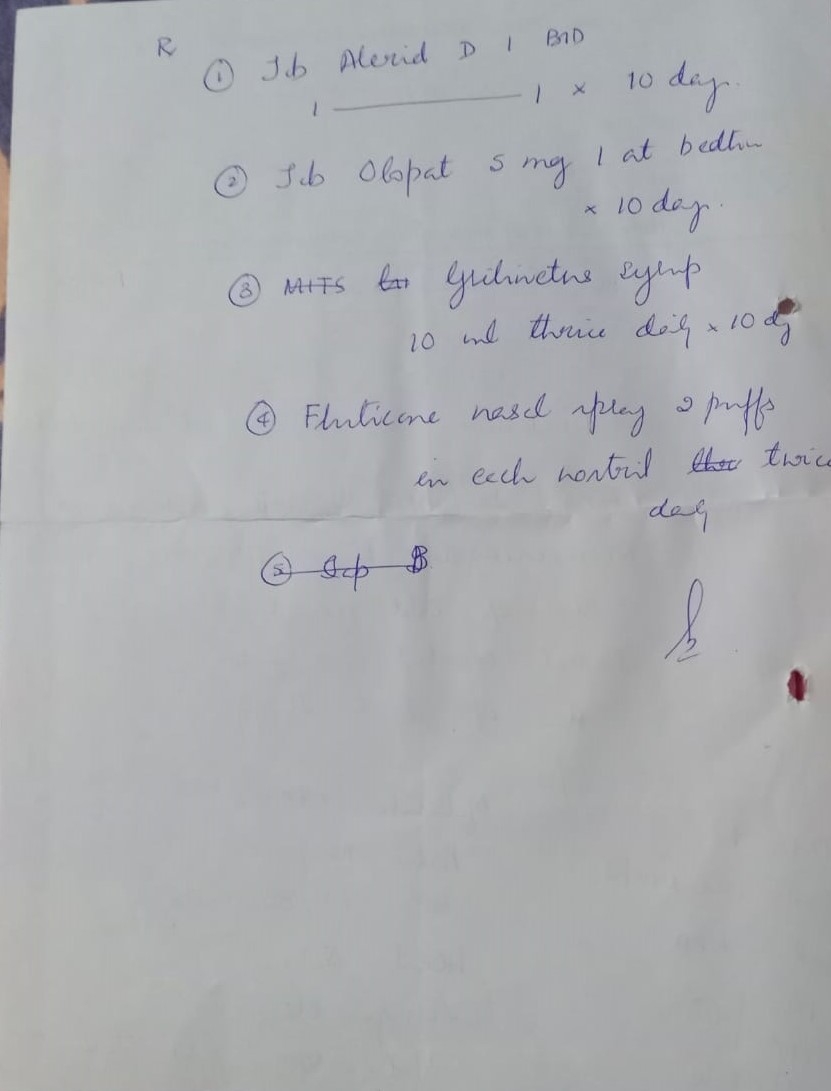 R
① Tab Alerid D 1 BID
1 ——— 1 x 10 day.
② Tab Olopat 5 mg 1 at bedtim
x 10 day.
③ Grilinctus syrup
10 ml thrice daily x 10 dy
④ Fluticone nasal spray 2 puffs
in each nostril twice
daily
⑤ B